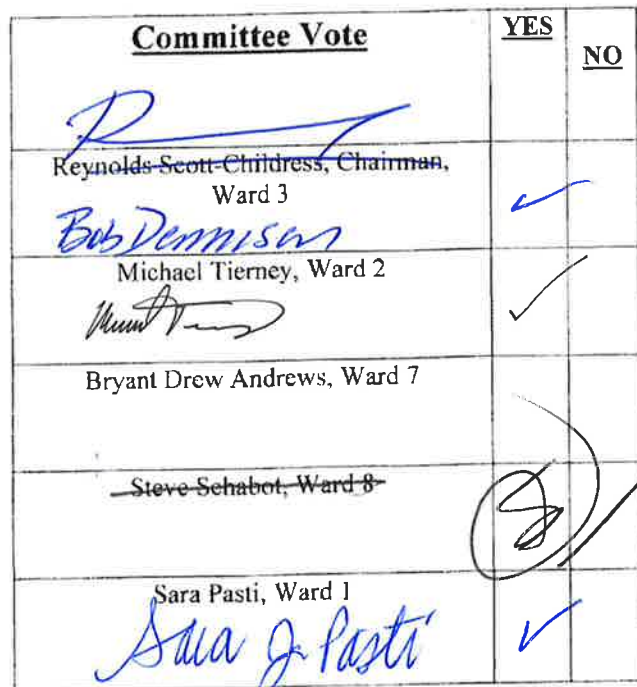 Committee Vote YES NO
Reynolds Scott-Childress, Chairman,
Ward 3
Bob Dennison
Michael Tierney, Ward 2
Bryant Drew Andrews, Ward 7
Steve Schabot, Ward 8
Sara Pasti, Ward 1
Sara J. Pasti